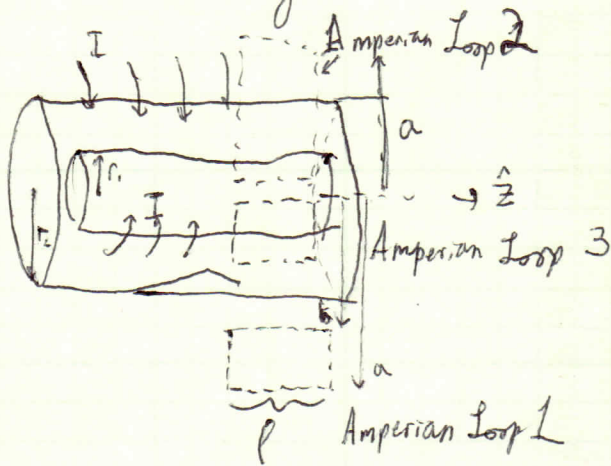 Amperian Loop 2
I
a
r₁
ẑ
I
r₂
Amperian Loop 3
b
a
l
Amperian Loop 1